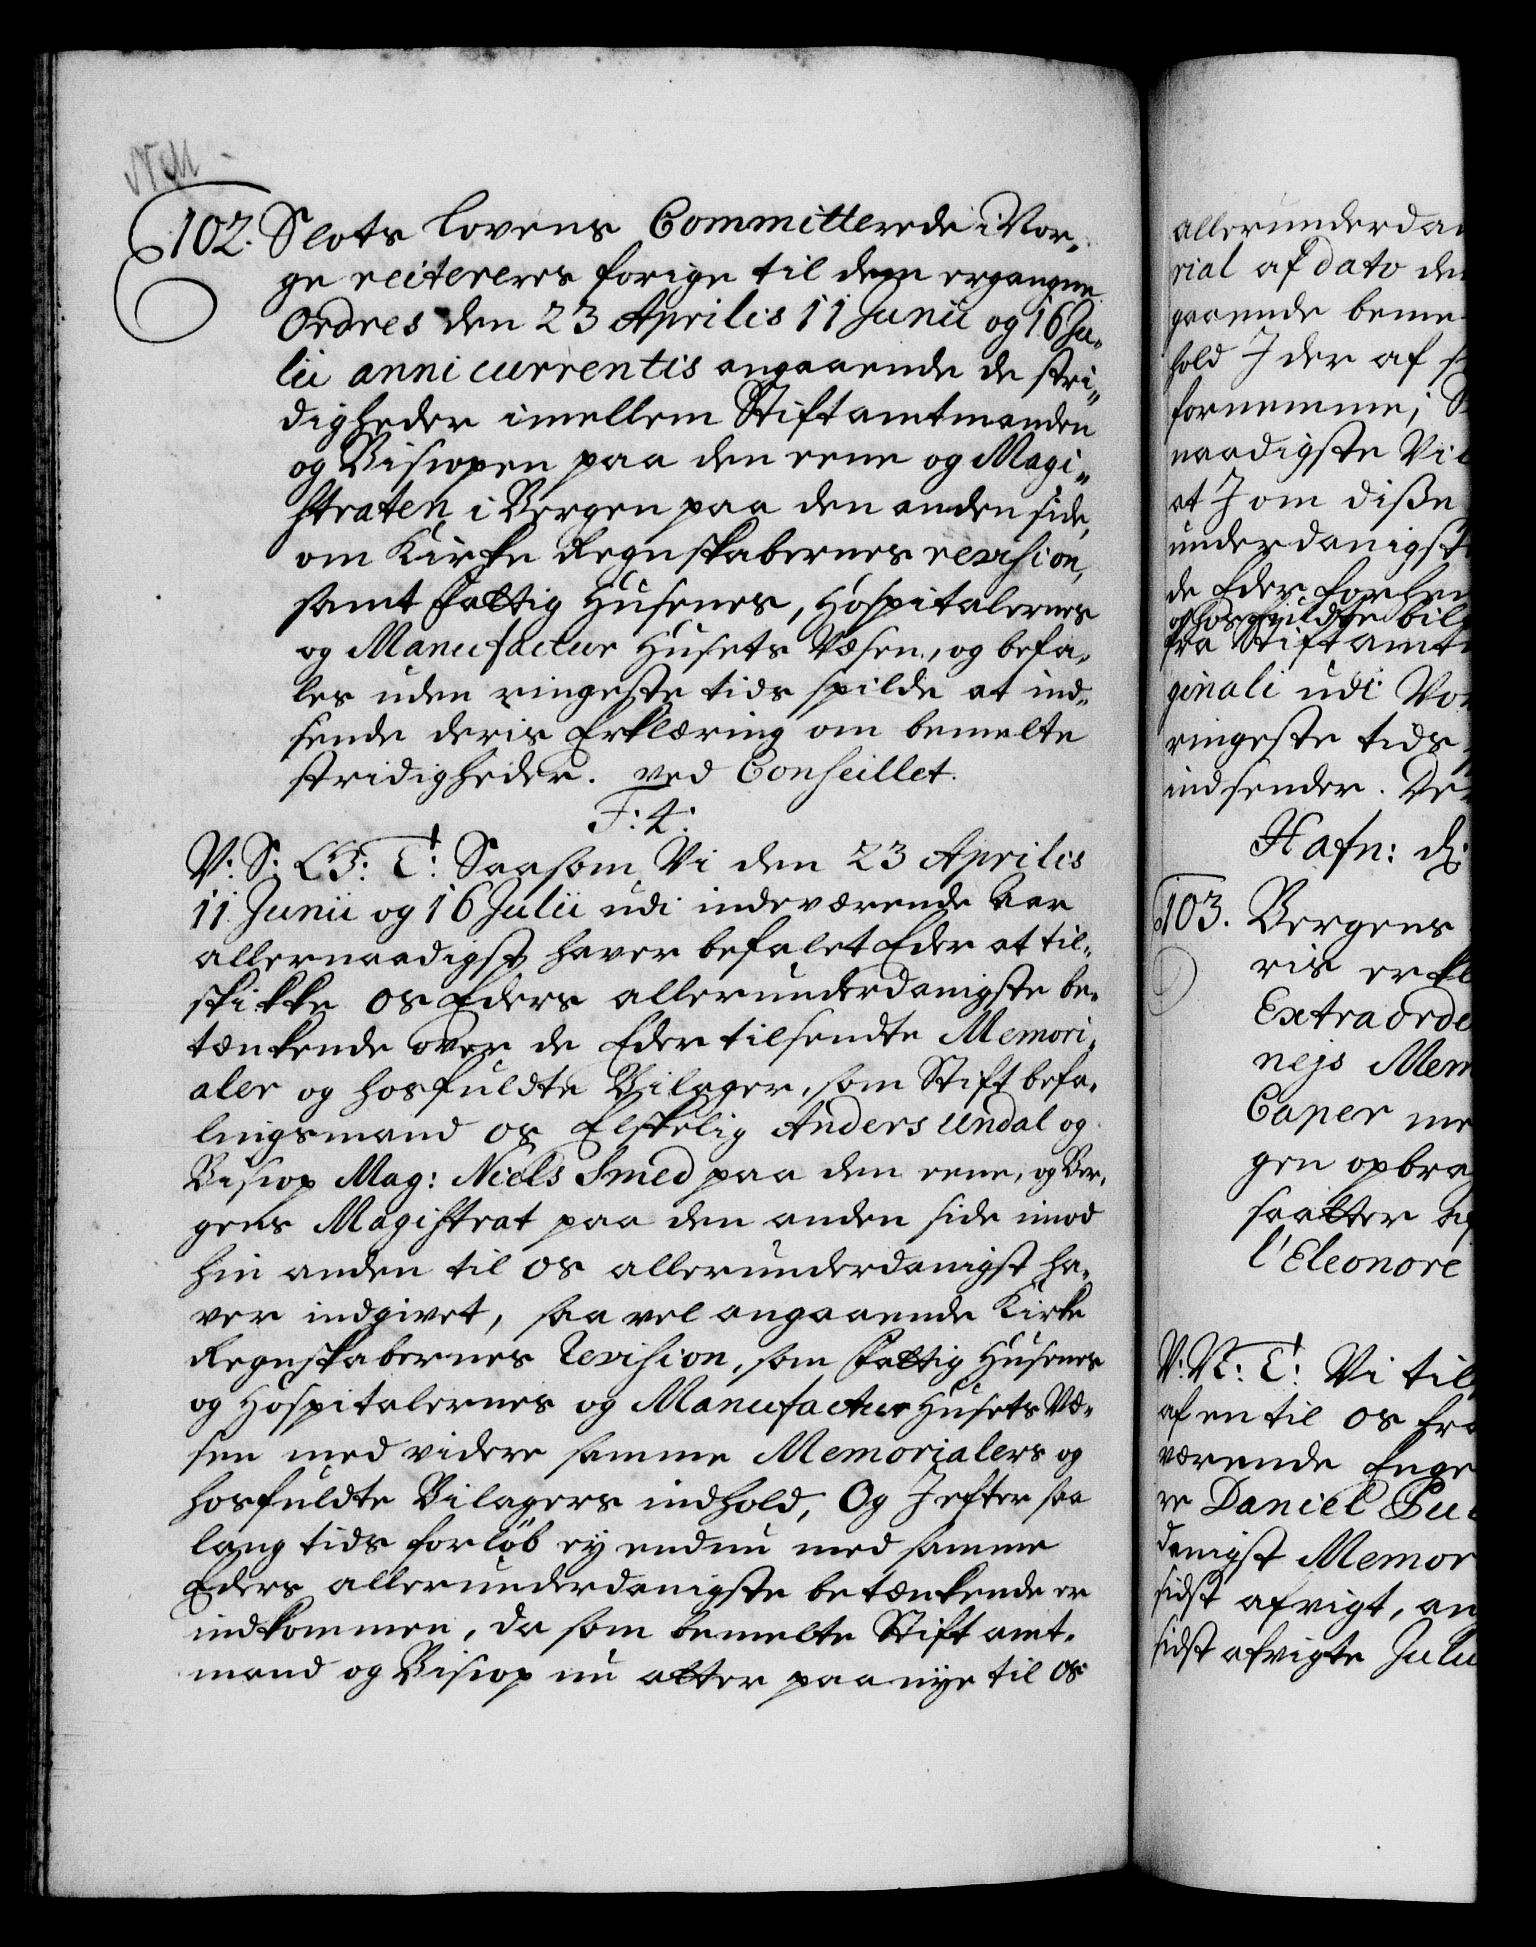 102. Slots Lovens Committerede i Nor-
ge reitereres forige til dem ergangne
Ordres den 23 Aprilis 11 Junii og 16 Ju-
lii anni currentis angaaende de stri-
digheder imellem Stiftamtmanden
og Bispen paa den eene og Magi-
straten i Bergen paa den anden side,
om Kirke Regnskabernes revision,
samt Fattig Husenes, Hospitalernes
og Manufactur Husets Væsen, og befa-
les uden ringeste tids spilde at ind-
sende deris Erklæring om bemelte
stridigheder. ved Conseillet.
F: 4:
V: S: G: T: Saasom Vi den 23 Aprilis
11 Junii og 16 Julii udi indeværende Aar
allernaadigst haver befalet Eder at til-
skikke os Eders allerunderdanigste be-
tænkende over de Eder tilsendte Memori-
aler og hosfuldte Bilager, som Stift befa-
lingsmand os Elskelig Anders Undal og
Bisp Mag: Niels Smed paa den eene, og Ber-
gens Magistrat paa den anden side imod
hin anden til os allerunderdanigst ha-
ver indgivet, saa vel angaaende Kirke
Regnskabernes Revision, som Fattig Husenes
og Hospitalernes og Manufactur Husets Væ-
sen med videre samme Memorialers og
hosfuldte Bilagers indhold, Og I efter saa
lang tids forløb ey endnu med samme
Eders allerunderdanigste betænkende er
indkommen, da som bemelte Stift amt-
mand og Bisp nu atter paa nye til os
allerunderdan
rial af dato den
gaaende beme
hold I der af
fornemme; 
naadigste Vil
at I om diße
underdanigst
de Eder forhen
og hosfyldte bil
fra Stiftamt
ginali udi Vor
ringeste tids
indsender. De
Hafn: d:
103. Bergens
ris erkl
Extraorde
nejs Mem
Caper me
gen opbra
saatter
l'Eleonore
V: N: T: Vi til
af en til os fra
værende Enge
re Daniel
danigst Memor
sidst afvigt, an
sidst afvigte Julii